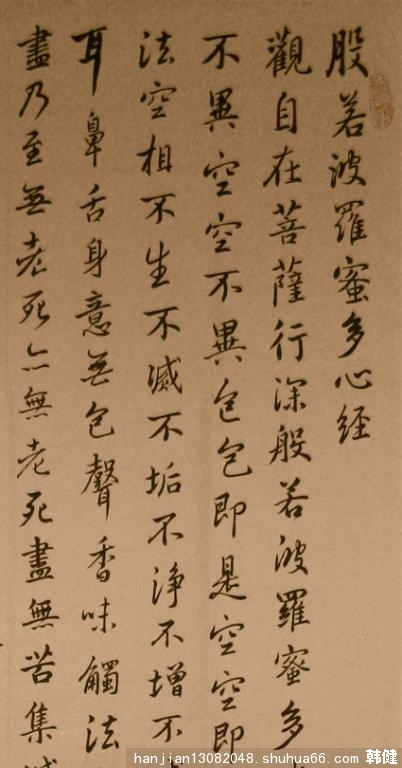 般若波羅蜜多心経
觀自在菩薩行深般若波羅蜜多
不異空空不異色色即是空空即
法空相不生不滅不垢不淨不增不
耳鼻舌身意無色聲香味觸法
盡乃至無老死亦無老死盡無苦集滅
hanjian13082048.shuhua66.com 韩健